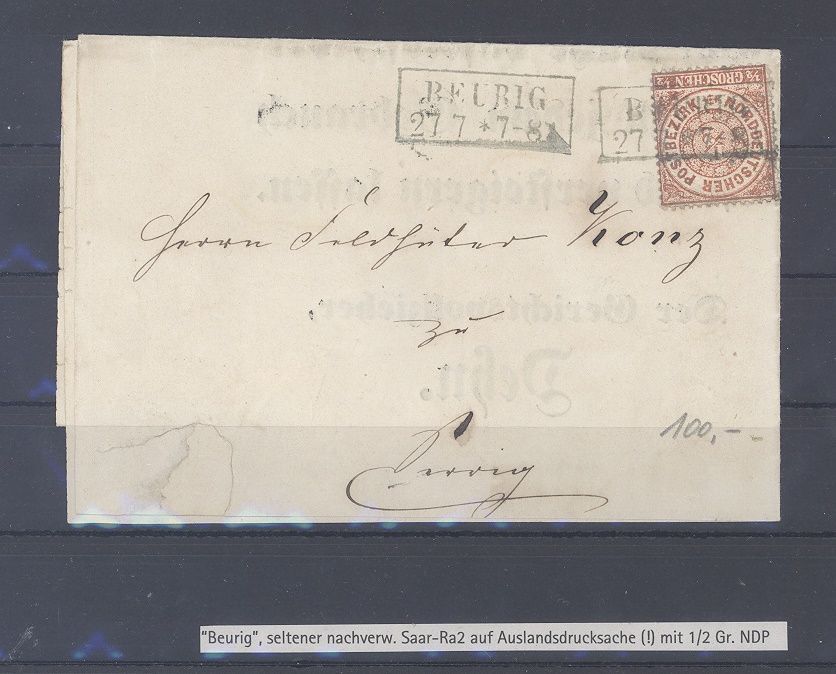 BEURIG
27 7 * 7-8
B
27
½ GROSCHEN ½
NORDDEUTSCHER POSTBEZIRK
Herrn Feldhüter Konz
zu
Serrig
versteigern lassen.
Der Gerichtsvollzieher
Dehn.
100,-
"Beurig", seltener nachverw. Saar-Ra2 auf Auslandsdrucksache (!) mit 1/2 Gr. NDP